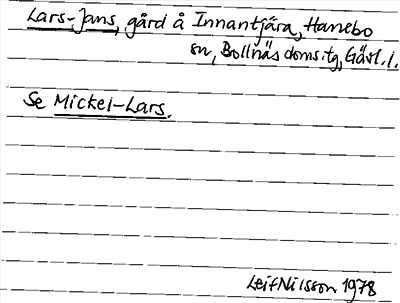 Lars-Jans, gård å Innantjära, Hanebo
sn, Bollnäs domsitg, Gävl. l.
Se Mickel-Lars.
Leif Nilsson 1978